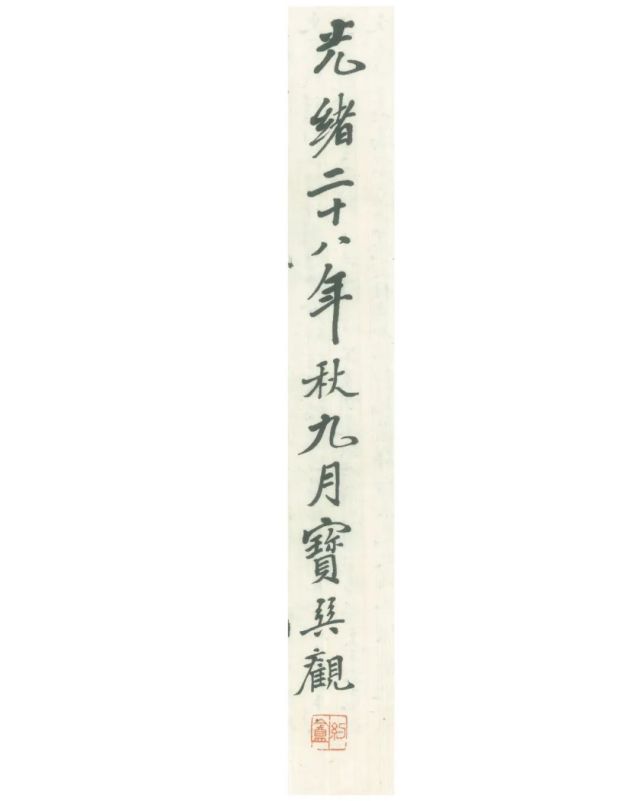 光緒二十八年秋九月寶巽觀